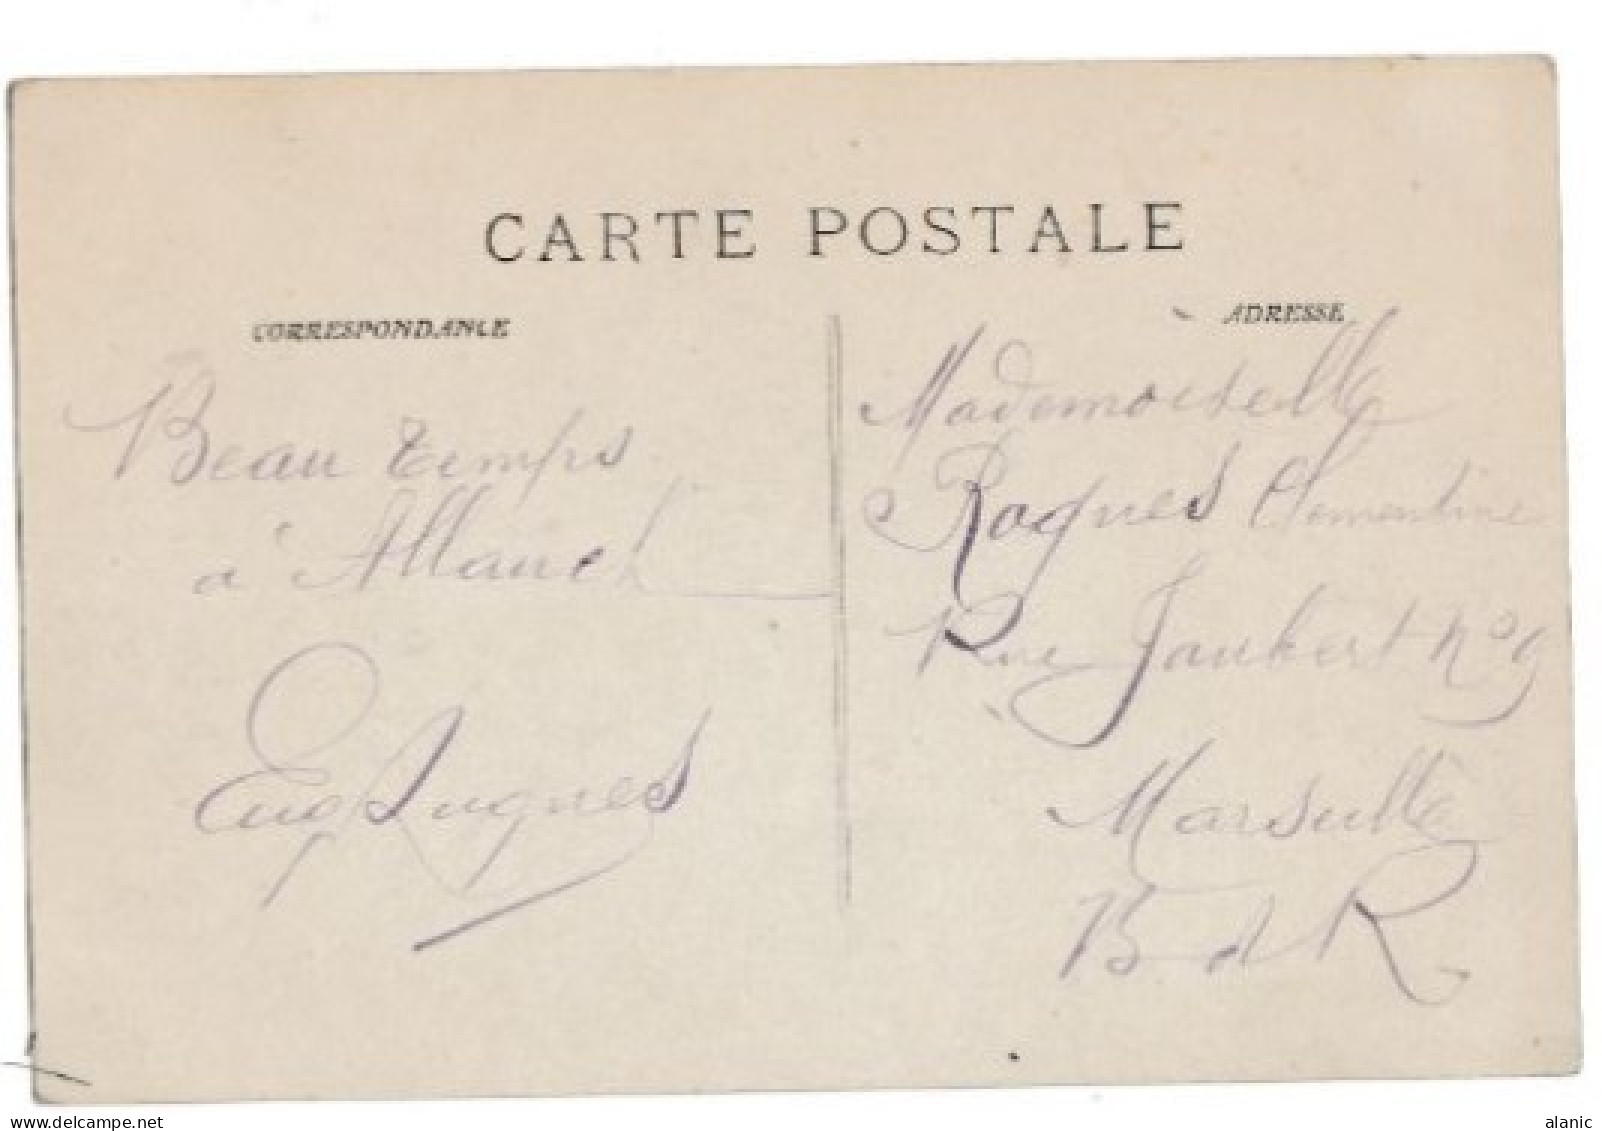 CARTE POSTALE
CORRESPONDANCE
ADRESSE
Beau temps
à Allauch
Mademoiselle
Roques Clementine
Rue Jaubert n° 9
Marseille
B d R
www.delcampe.net
alanic